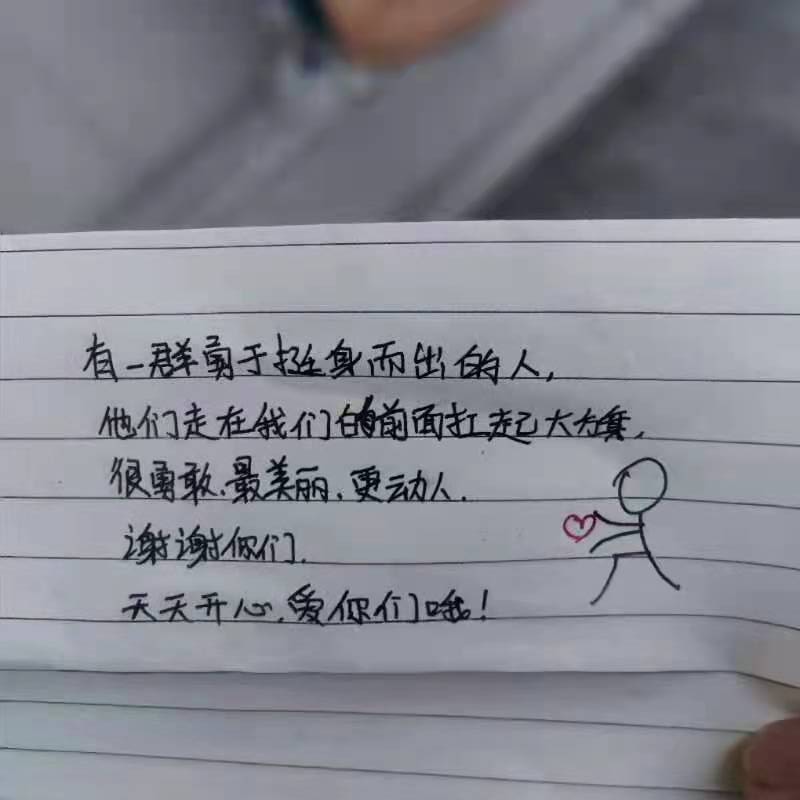 有一群勇于挺身而出的人,
他们走在我们的前面扛起大大集,
很勇敢.最美丽.更动人.
谢谢你们.
天天开心.爱你们哦!